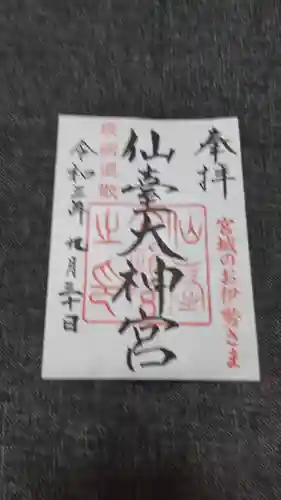 奉拝
宮城のお伊勢さま
仙臺大神宮
疫病退散
令和三年九月三十日